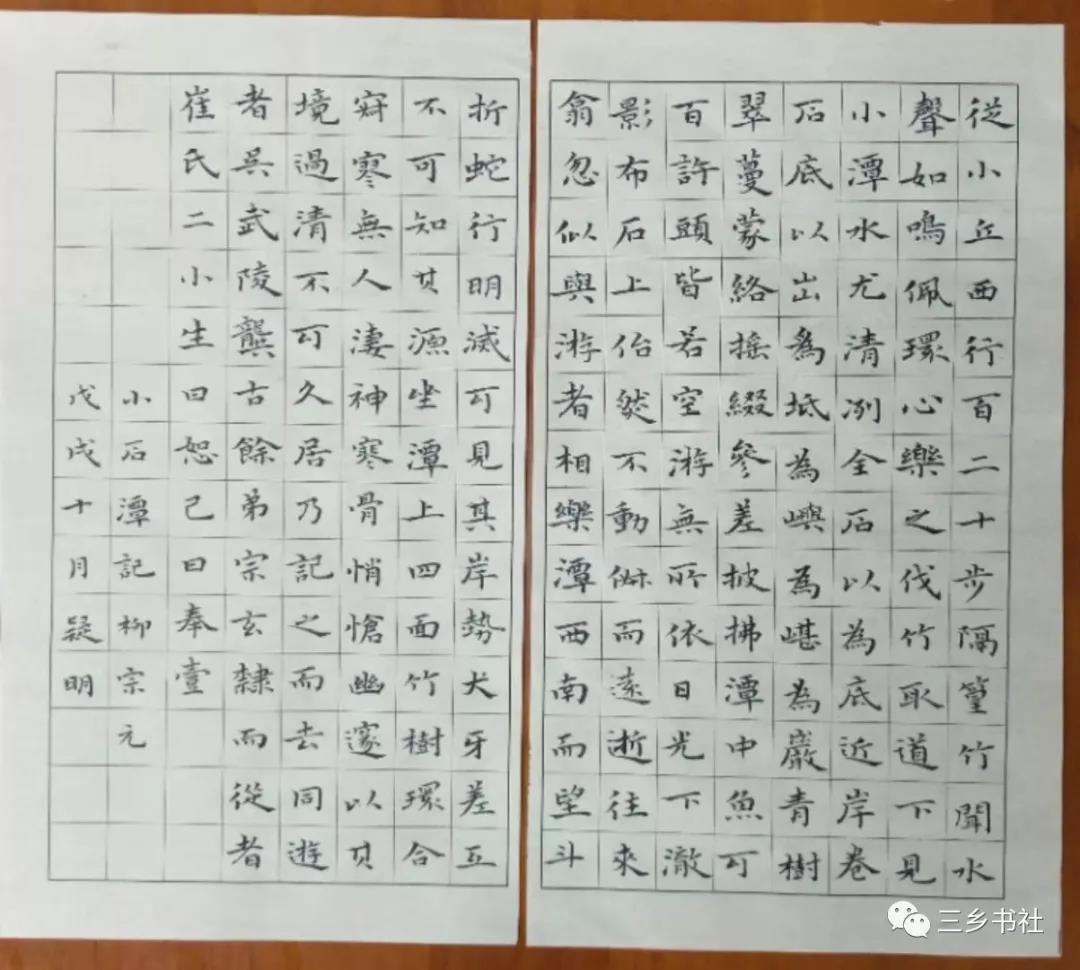 從小丘西行百二十步隔篁竹聞水
聲如鳴佩環心樂之伐竹取道下見
小潭水尤清冽全石以為底近岸卷
石底以出為坻為嶼為嵁為巖青樹
翠蔓蒙絡搖綴參差披拂潭中魚可
百許頭皆若空游無所依日光下澈
影布石上佁然不動俶而遠逝往來
翕忽似與游者相樂潭西南而望斗
折蛇行明滅可見其岸勢犬牙差互
不可知其源坐潭上四面竹樹環合
寂寥無人淒神寒骨悄愴幽邃以其
境過清不可久居乃記之而去同遊
者吳武陵龔古餘弟宗玄隸而從者
崔氏二小生曰恕己曰奉壹
小石潭記柳宗元
戊戌十月明
三乡书社